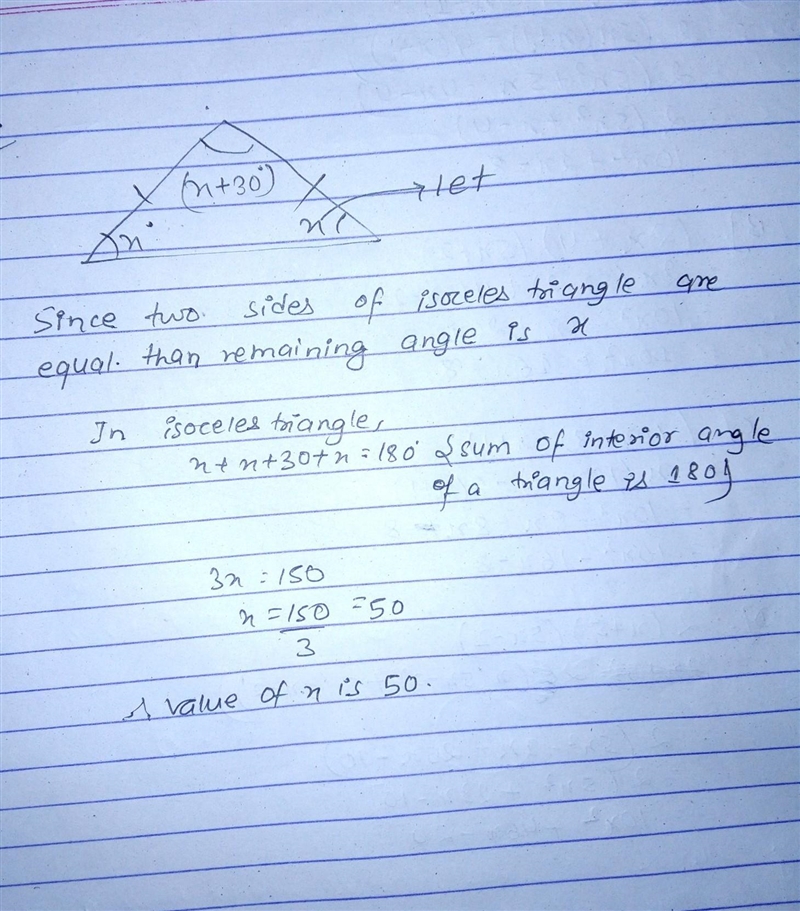 (x+30°)
let
x°
x
Since two sides of isoceles triangle are
equal. than remaining angle is x
In isoceles triangle,
x+x+30+x=180° {sum of interior angle
of a triangle is 180}
3x=150
x=150=50
3
value of x is 50.